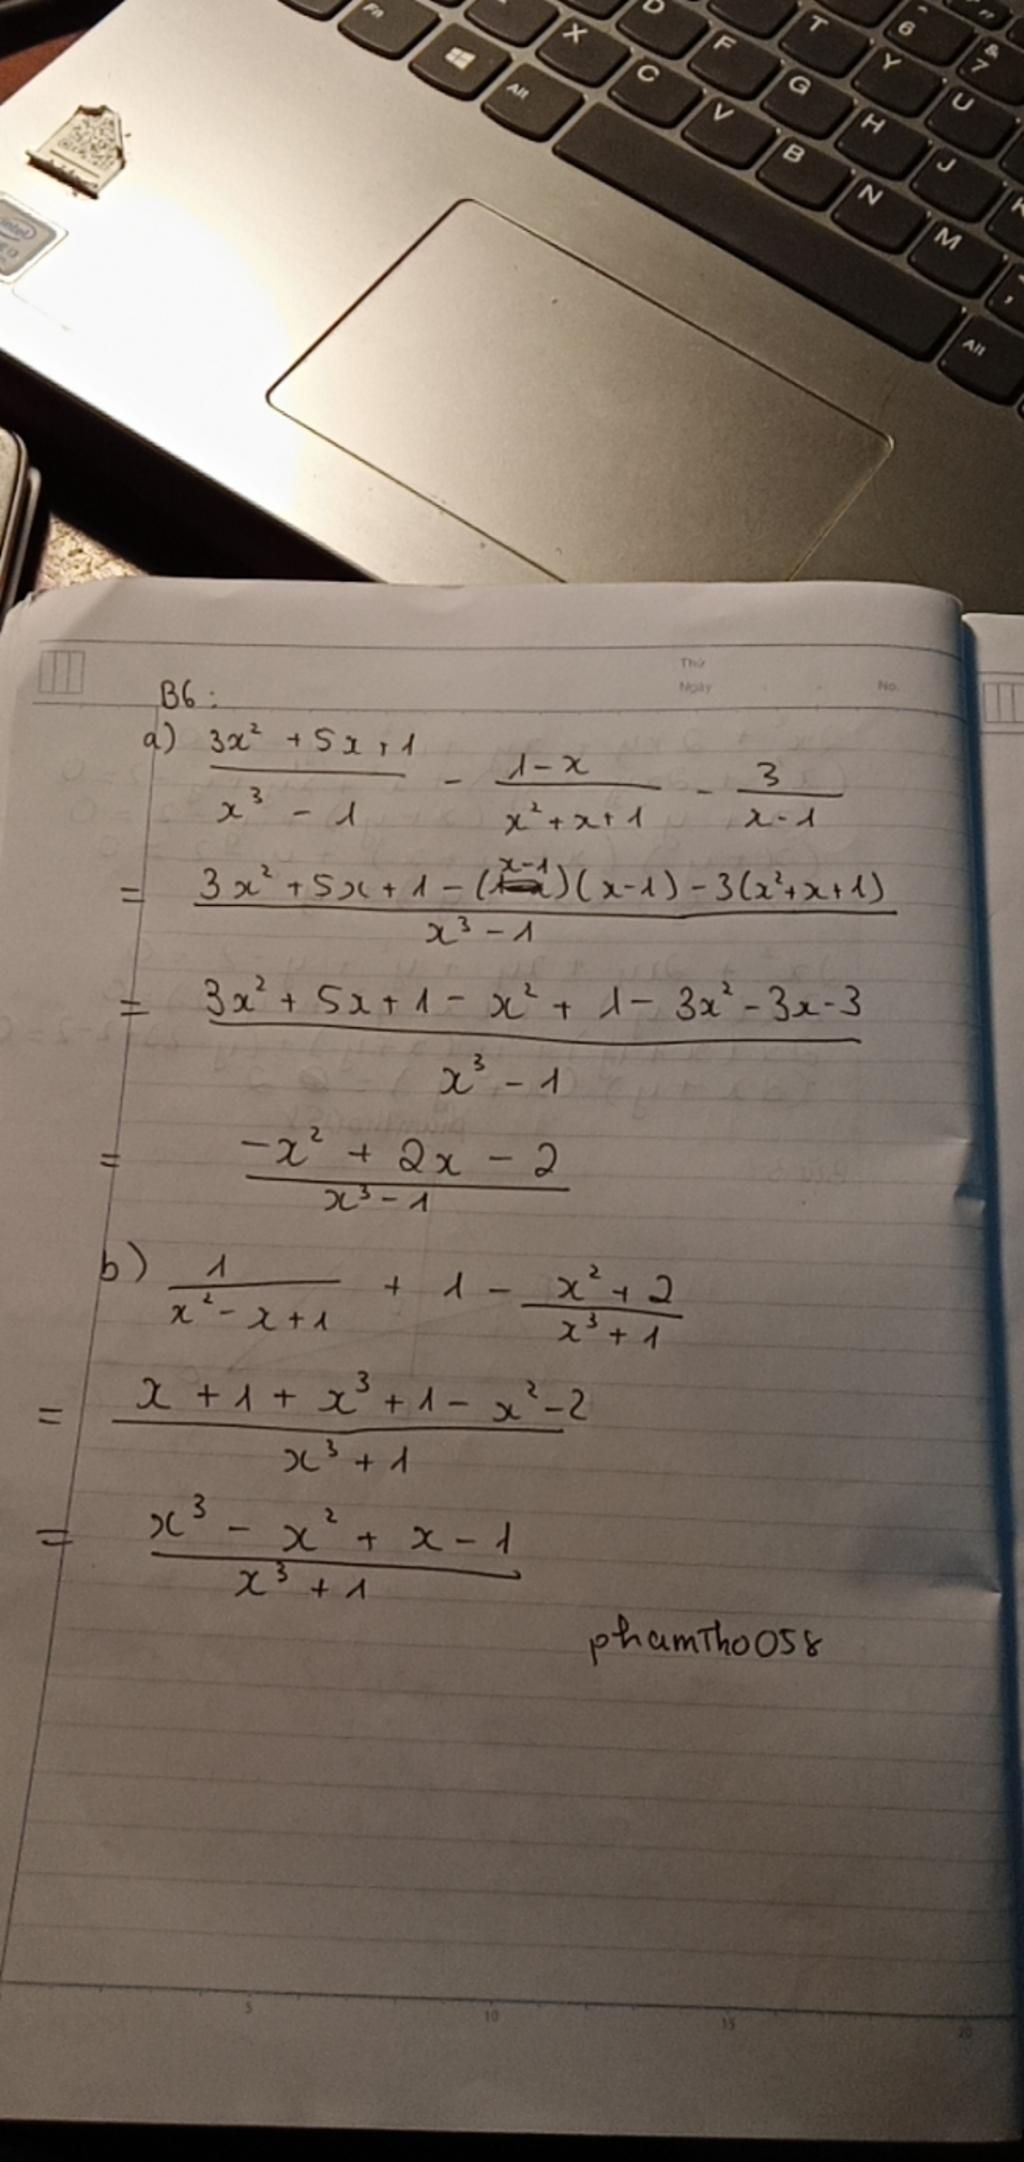 Fn
Alt
X
D
C
F
V
G
T
B
H
Y
6
N
J
U
&
7
M
K
,
Alt
intel
Thứ
Ngày
No.
B6:
a) (3x² + 5x + 1)/(x³ - 1) - (1 - x)/(x² + x + 1) - 3/(x - 1)
= (3x² + 5x + 1 - (x-1)(x-1) - 3(x²+x+1))/(x³ - 1)
= (3x² + 5x + 1 - x² + 1 - 3x² - 3x - 3)/(x³ - 1)
= (-x² + 2x - 2)/(x³ - 1)
b) 1/(x² - x + 1) + 1 - (x² + 2)/(x³ + 1)
= (x + 1 + x³ + 1 - x² - 2)/(x³ + 1)
= (x³ - x² + x - 1)/(x³ + 1)
phamTho058
5 10 15 20